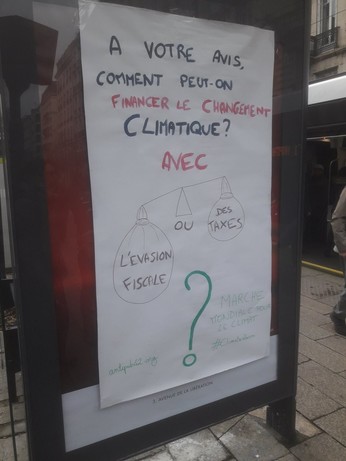 A VOTRE AVIS,
COMMENT PEUT-ON
FINANCER LE CHANGEMENT
CLIMATIQUE?
AVEC
L'EVASION
FISCALE
OU
DES
TAXES
?
MARCHE
MONDIALE POUR
LE CLIMAT
antipub.org